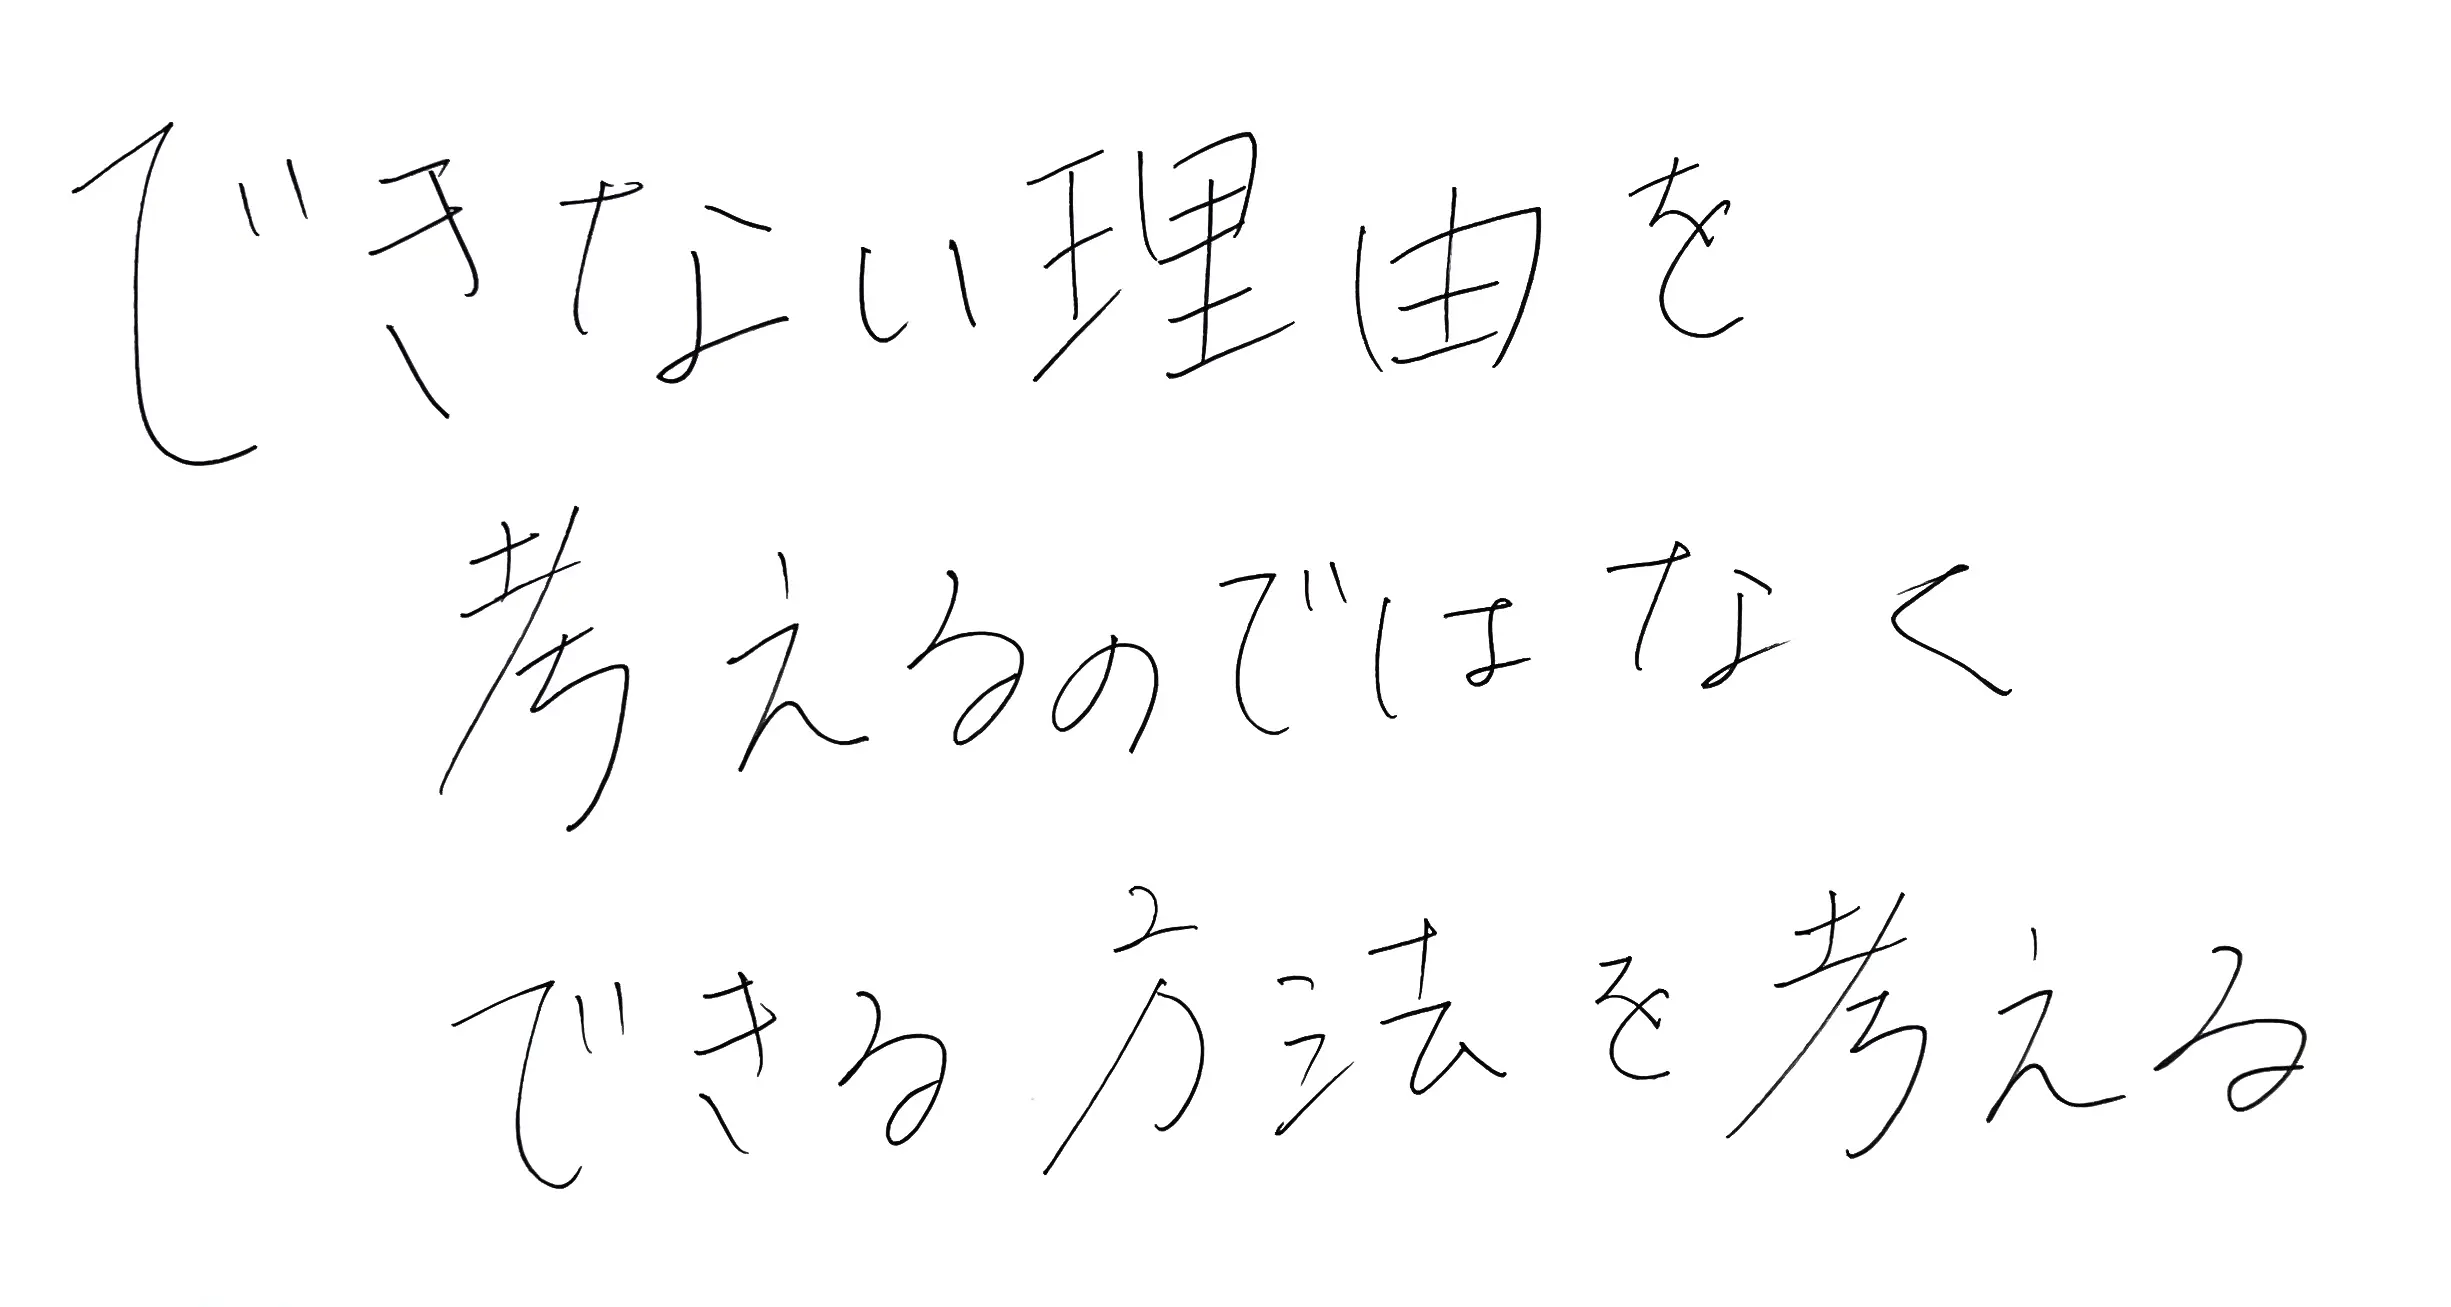 できない理由を
考えるのではなく
できる方法を考える